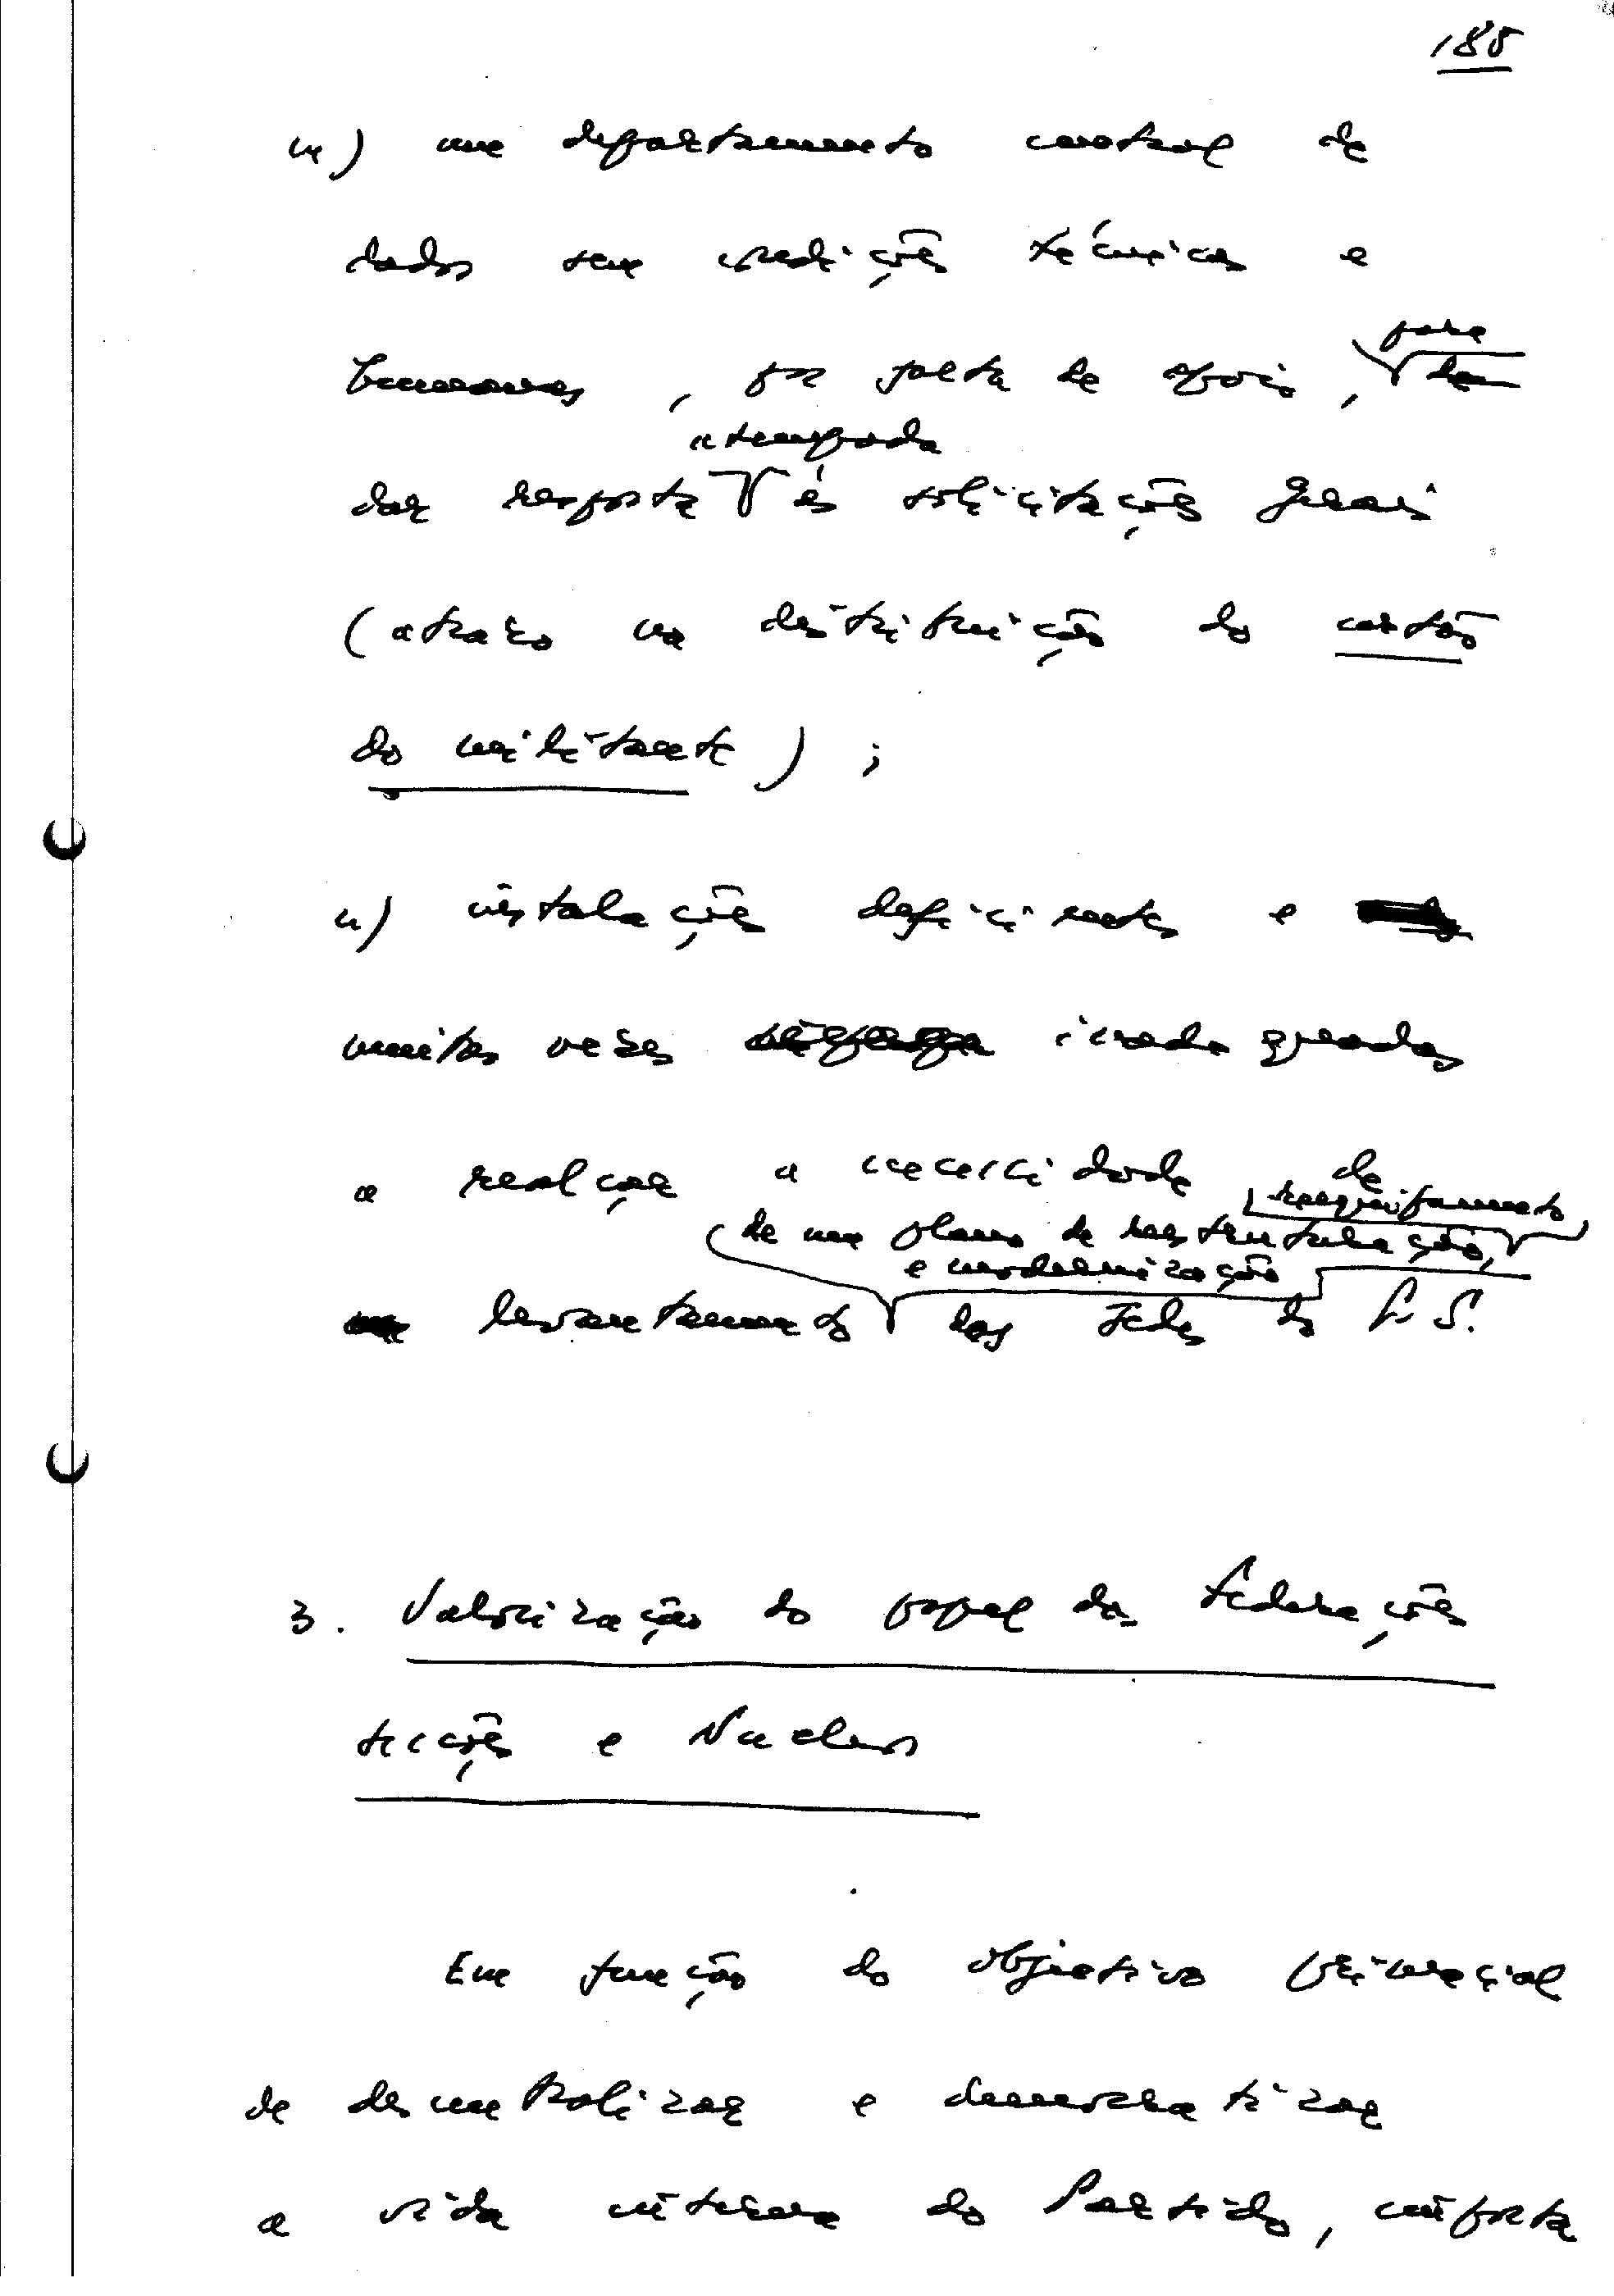 188
m) um departamento central de
dados sem condições técnicas e
humanas, por falta de apoio, para de
dar resposta atempada às solicitações gerais
(atraso na distribuição do cartão
do militante);
n) instalações deficientes e
muitas vezes inadequadas
a realçar a necessidade de
reequipamento
de um plano de reestruturação,
e modernização
levantamento das sedes do P.S.
3. Valorização do papel das Federações
Secções e Nucleos
Em função do objectivo primacial
de descentralizar e democratizar
a vida interna do Partido, importa